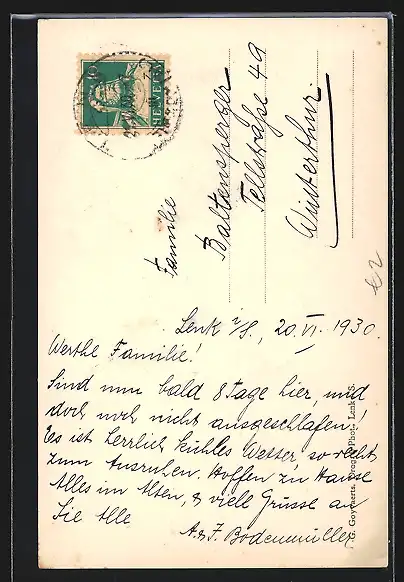 10
HELVETIA
Familie
Baltensperger
Tellstraße 49
Winterthur
Lenk i/S., 20. VI. 1930.
Werthe Familie!
Sind nun bald 8 Tage hier, und
doch noch nicht ausgeschlafen!
Es ist herrlich kühles Wetter, so recht
zum Ausruhen. Hoffen zu Hause
Alles im Alten, & viel Grüsse an
Sie Alle
A. & F. Bodenmüller
G. Goyvaerts, Drog. Phot., Lenk i. S.